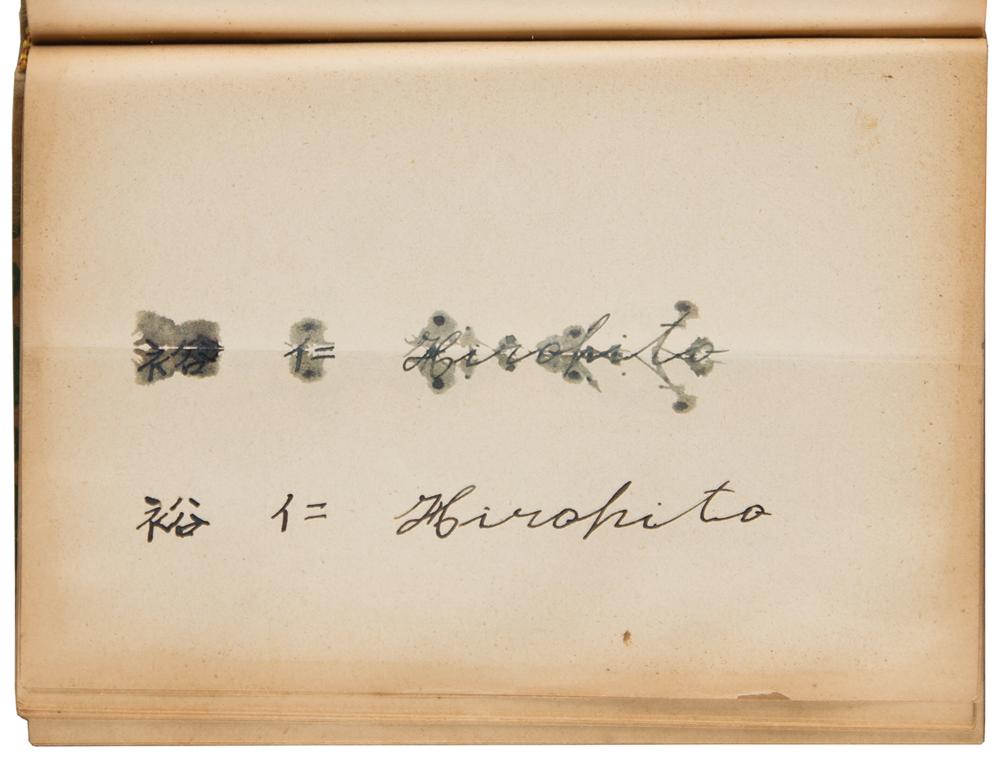 裕仁 Hirohito
裕仁 Hirohito